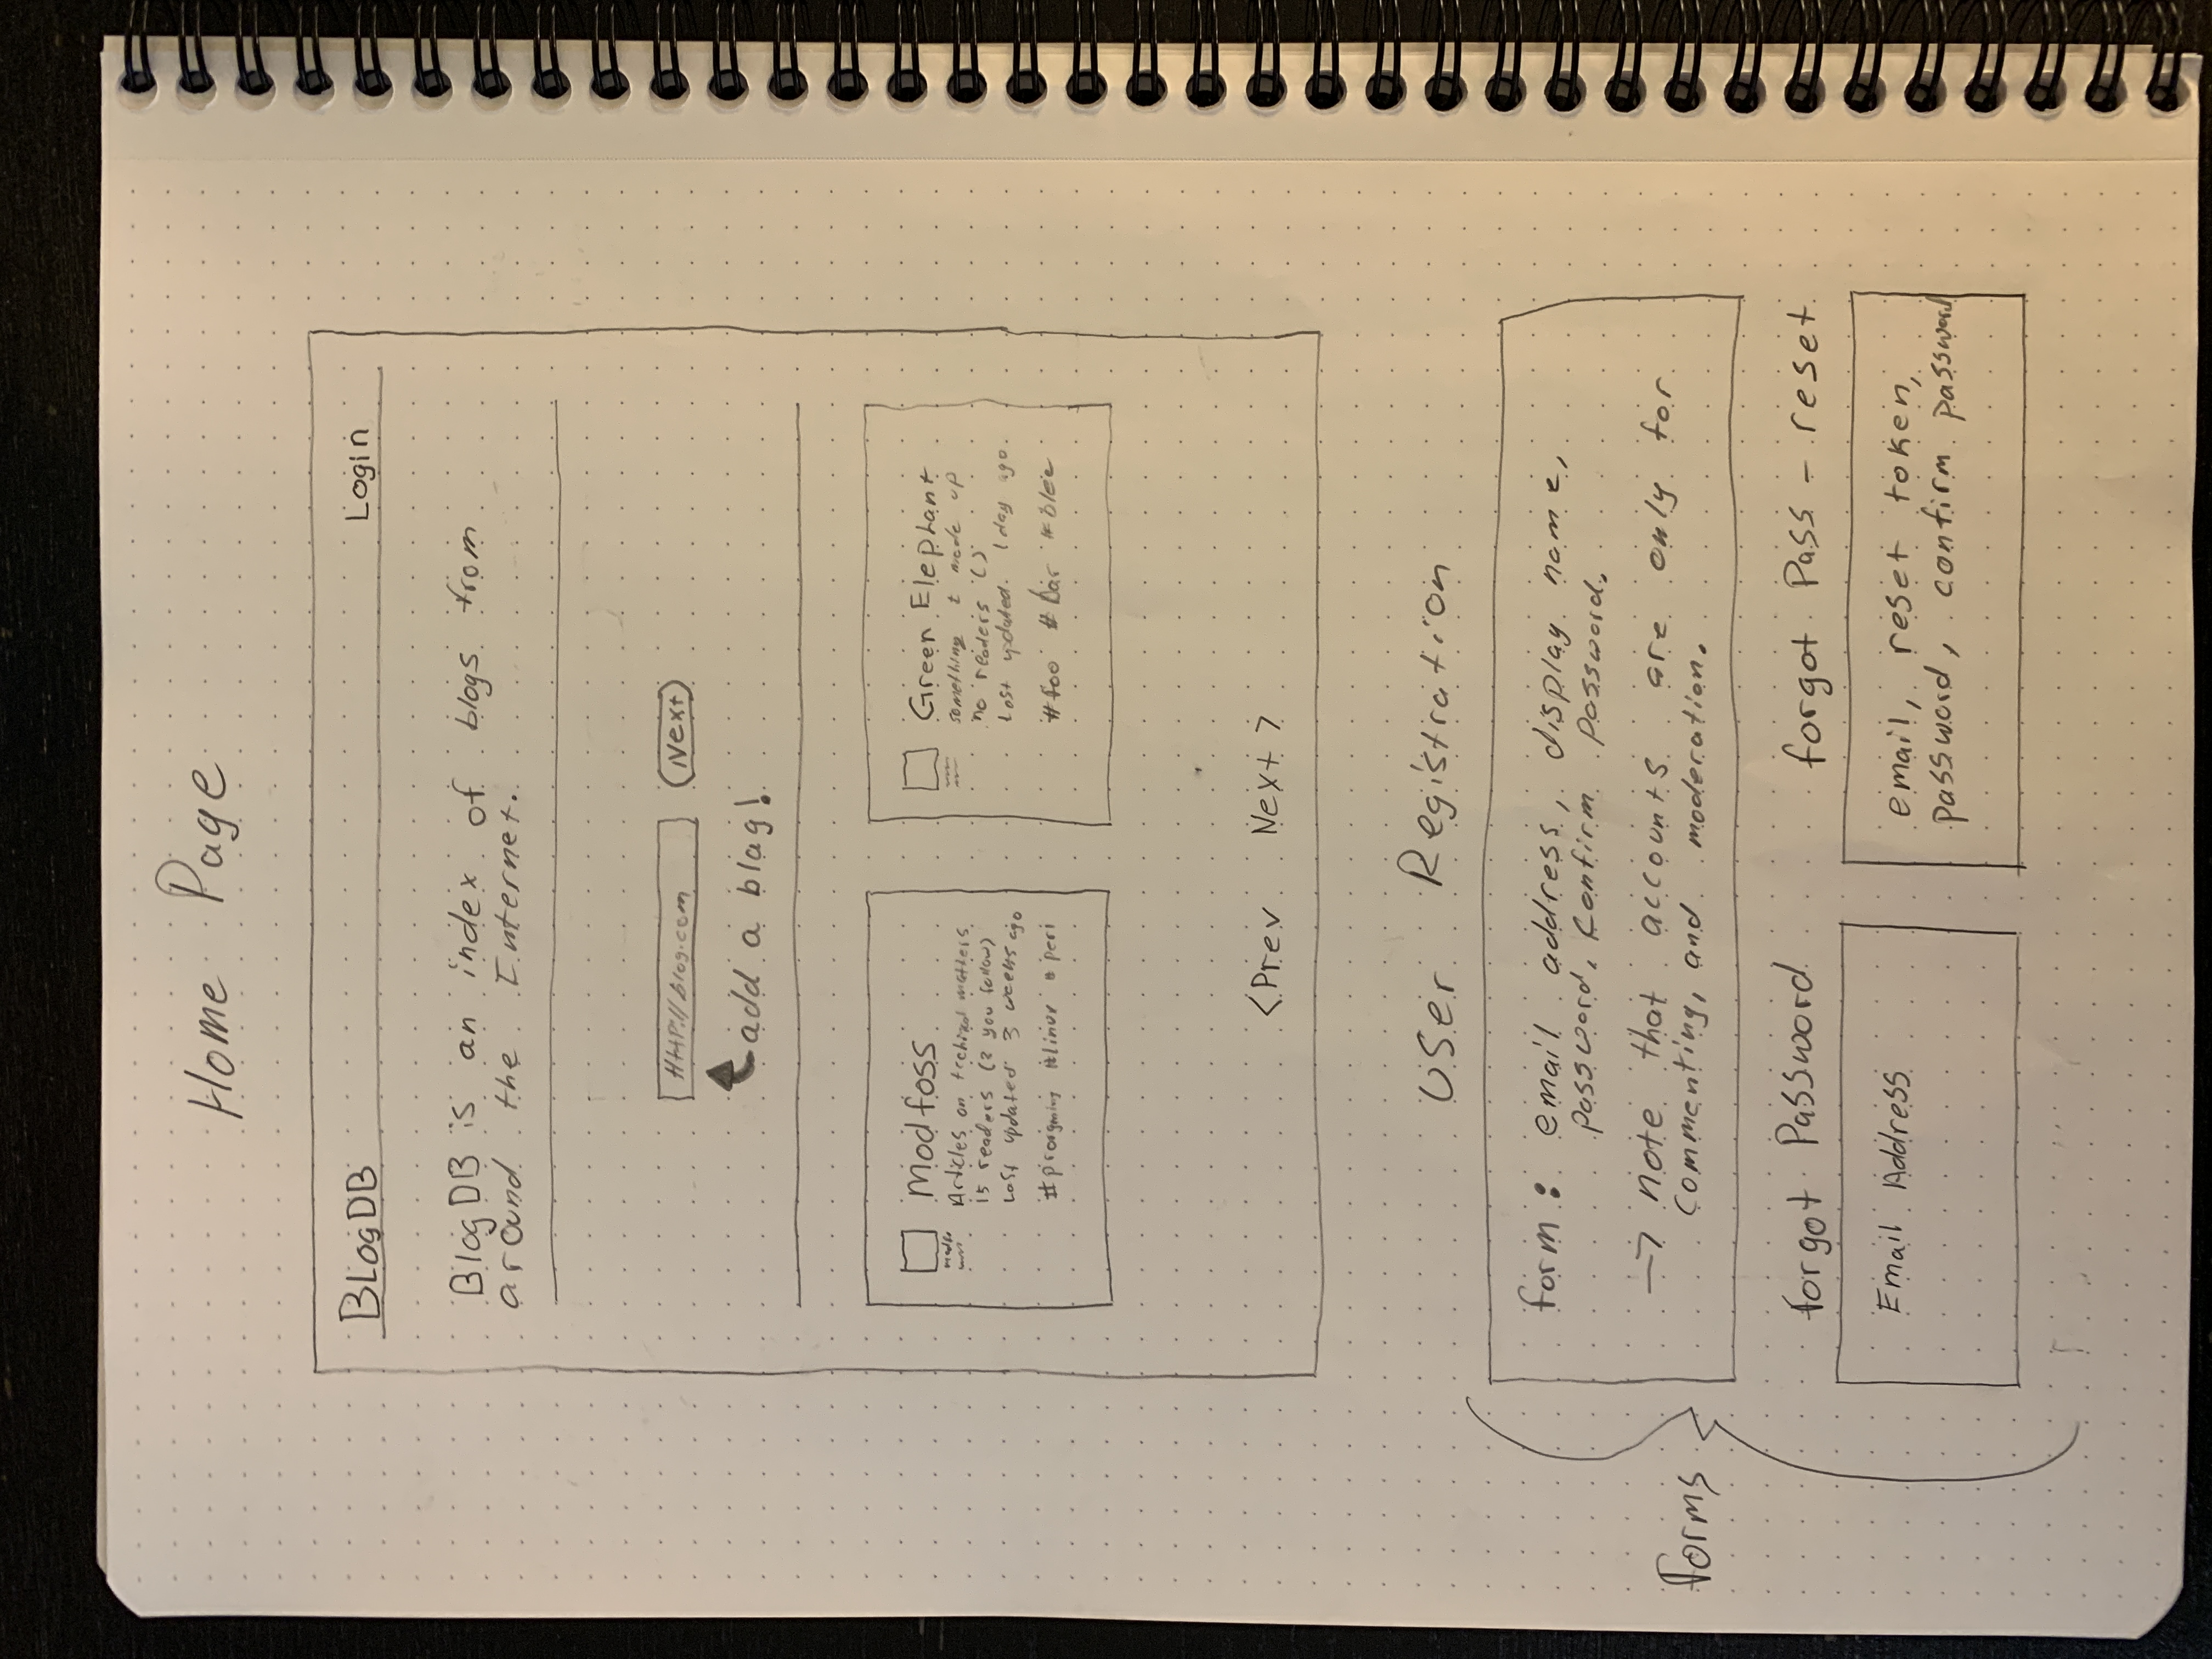 Home Page
BLogDB Login
BlogDB is an index of blogs from
around the Internet.
HTTP://blog.com Next
add a blag!
Modfoss
Articles on techinal matters
15 readers (2 you follow)
Last updated 3 weeks ago
#linux #perl
Green Elephant
something I made up
no readers :(
Last updated 1 day ago.
#foo #bar #blee
<Prev Next >
User Registration
form: email address, display name,
password, confirm password.
→ note that accounts are only for
commenting, and moderation.
forms
forgot Password
Email Address
forgot Pass - reset
email, reset token,
password, confirm password